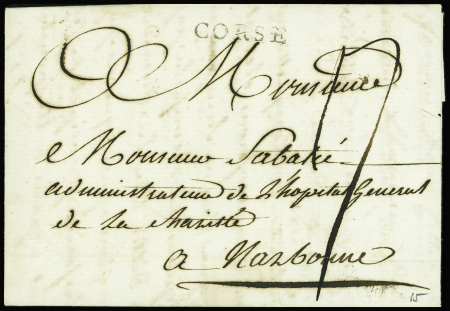 CORSE
Monsieur
Monsieur Sabatié
administrateur de L'hopital General
de La charitté
a Narbonne
15